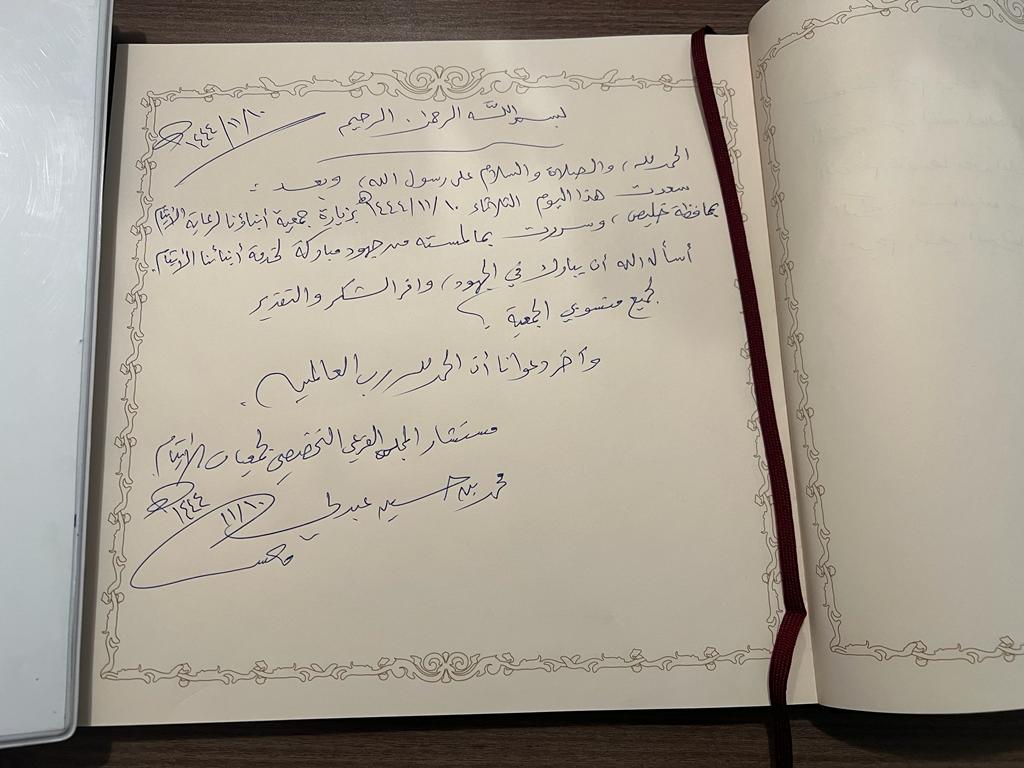 بسم الله الرحمن الرحيم
١٤٤٤/١١/١٠هـ
الحمد لله، والصلاة والسلام على رسول الله، وبعد:
سعدت هذا اليوم الثلاثاء ١٤٤٤/١١/١٠هـ بزيارة جمعية أبناؤنا لرعاية الأيتام
بمحافظة خليص، وسررت بما لمسته من جهود مباركة لخدمة أبنائنا الأيتام.
أسأل الله أن يبارك في الجهود، وافر الشكر والتقدير
لجميع منسوبي الجمعية
وآخر دعوانا أن الحمد لله رب العالمين.
مستشار المجلس الفرعي التخصصي لجمعيات الأيتام
محمد بن حسين عبدلي
١٤٤٤/١١/١٠هـ